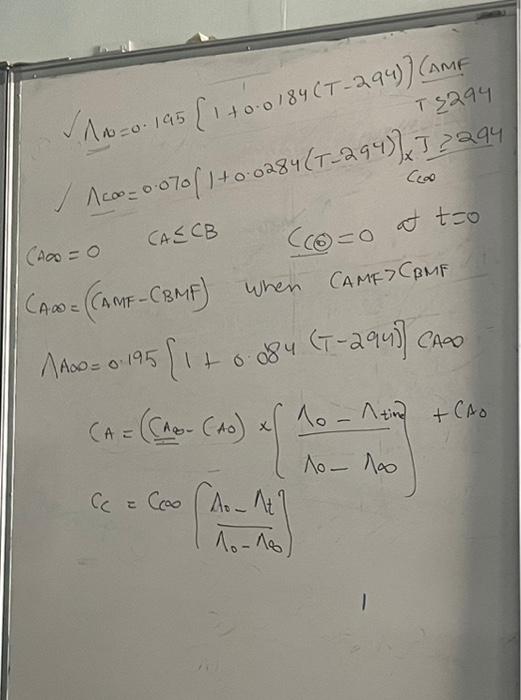 ✓ Λ₀₀=0.195 [1+0.0184(T-294)] CAMF
T≥294
✓ ΛC∞=0.070[1+0.0284(T-294)]× T≥294
CC∞
CA∞=0 CA≤CB CC0=0 at t=0
CA∞=(CAMF-CBMF) when CAMF>CBMF
ΛA∞=0.195[1+0.084 (T-294)] CA∞
CA=(CA∞-CA0)×[(Λ0-Λtime)/(Λ0-Λ∞)]+CA0
Cc = CC∞ [(Λ0-Λt)/(Λ0-Λ∞)]